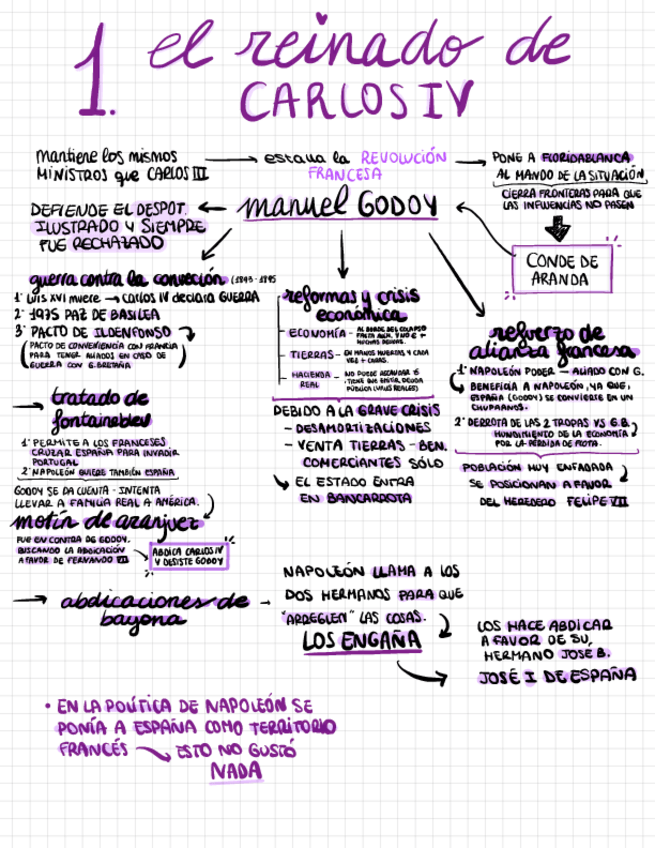 1. el reinado de
CARLOS IV
Mantiene los mismos
MINISTROS que CARLOS III
estalla la REVOLUCIÓN
FRANCESA
PONE A FLORIDABLANCA
AL MANDO DE LA SITUACIÓN
CIERRA FRONTERAS PARA QUE
LAS INFLUENCIAS NO PASEN
CONDE DE
ARANDA
manuel GODOY
DEFIENDE EL DESPOT.
ILUSTRADO Y SIEMPRE
FUE RECHAZADO
guerra contra la conveción (1893-1895
1º LUIS XVI muere → CARLOS IV declara GUERRA
2º 1975 PAZ DE BASILEA
3º PACTO DE ILDENFONSO
PACTO DE CONVENIENCIA CON FRANCIA
PARA TENER ALIADOS EN CASO DE
GUERRA CON G.BRETAÑA
→ tratado de
fontainebleu
1º PERMITE A LOS FRANCESES
CRUZAR ESPAÑA PARA INVADIR
PORTUGAL
2º NAPOLEÓN QUIERE TAMBIÉN ESPAÑA
GODOY SE DA CUENTA - INTENTA
LLEVAR A FAMILIA REAL A AMÉRICA.
motín de aranjuez
FUE EN CONTRA DE GODOY.
BUSCANDO LA ABDICACIÓN
A FAVOR DE FERNANDO VII
ABDICA CARLOS IV
Y DESISTE GODOY
reformas y crisis
económica
- ECONOMÍA - AL BORDE DEL COLAPSO
FALTA AGUA, VINO E +
MUCHAS DEUDAS.
- TIERRAS - EN MANOS MUERTAS Y CADA
VEZ + CARAS.
- HACIENDA REAL - NO PUEDE RECAUDAR Y
TIENE QUE EMITIR DEUDA
PÚBLICA (VALES REALES)
DEBIDO A LA GRAVE CRISIS
- DESAMORTIZACIONES
- VENTA TIERRAS - BEN.
COMERCIANTES SÓLO
EL ESTADO ENTRA
EN BANCARROTA
refuerzo de
alianza francesa
1º NAPOLEÓN PODER — ALIADO CON G.
BENEFICIA A NAPOLEÓN, YA QUE,
ESPAÑA (GODOY) SE CONVIERTE EN UN
CHUPAANOS.
2º DERROTA DE LAS 2 TROPAS VS G.B.
HUNDIMIENTO DE LA ECONOMÍA
POR LA PÉRDIDA DE FLOTA.
POBLACIÓN MUY ENFADADA
SE POSICIONAN A FAVOR
DEL HEREDERO FELIPE VII
→ abdicaciones de
bayona
NAPOLEÓN LLAMA A LOS
DOS HERMANOS PARA QUE
"ARREGLEN" LAS COSAS.
LOS ENGAÑA
LOS HACE ABDICAR
A FAVOR DE SU,
HERMANO JOSE B.
JOSÉ I DE ESPAÑA
• EN LA POLÍTICA DE NAPOLEÓN SE
PONÍA A ESPAÑA COMO TERRITORIO
FRANCÉS → ESTO NO GUSTÓ
NADA